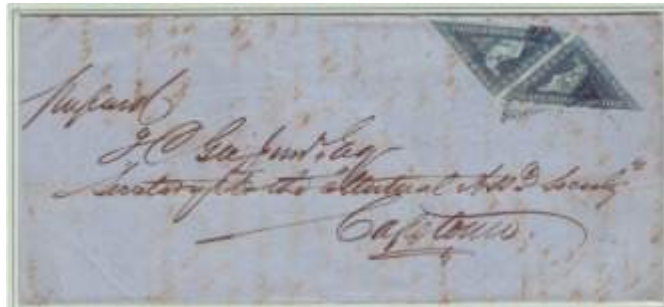 J C Gie Junr. Esq
Secretary to the Mutual Assce Society
Capetown.